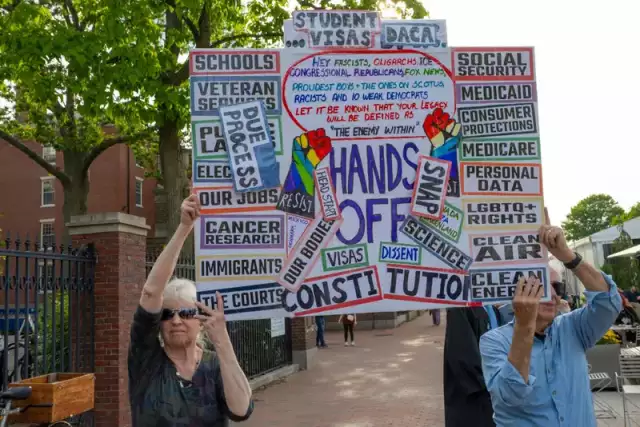 STUDENT
VISAS
DACA
SCHOOLS
VETERAN
SERV
DUE
PROCESS
ELEC
OUR JOBS
CANCER
RESEARCH
IMMIGRANTS
THE COURTS
HEY FASCISTS, OLIGARCHS, ICE
CONGRESSIONAL REPUBLICANS, FOX NEWS,
PROUDEST BOYS + THE ONES ON SCOTUS
RACISTS AND 10 WEAK DEMOCRATS
LET IT BE KNOWN THAT YOUR LEGACY
WILL BE DEFINED AS
"THE ENEMY WITHIN"
HANDS
OFF
RESIST
HEAD START
OUR DOGE
VISAS
DISSENT
SNAP
SCIENCE
CONSTI TUTION
SOCIAL
SECURITY
MEDICAID
CONSUMER
PROTECTIONS
MEDICARE
PERSONAL
DATA
LGBTQ+
RIGHTS
CLEAN
AIR
CLEAN
ENERG